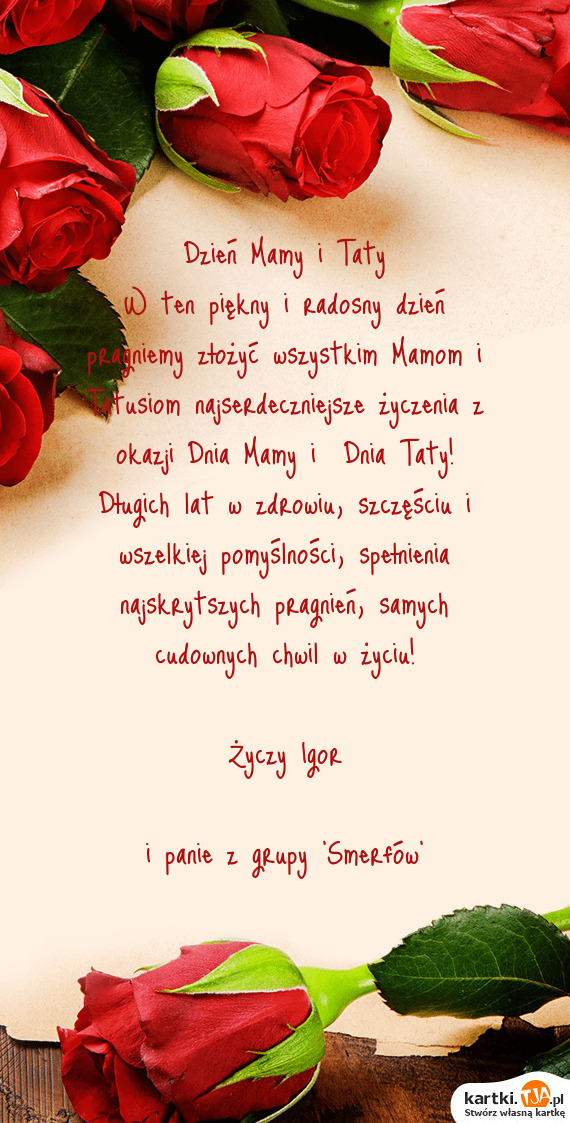 Dzień Mamy i Taty
W ten piękny i radosny dzień
pragniemy złożyć wszystkim Mamom i
Tatusiom najserdeczniejsze życzenia z
okazji Dnia Mamy i  Dnia Taty!
Długich lat w zdrowiu, szczęściu i
wszelkiej pomyślności, spełnienia
najskrytszych pragnień, samych
cudownych chwil w życiu!
Życzy Igor
i panie z grupy 'Smerfów'
kartki.TJA.pl
Stwórz własną kartkę